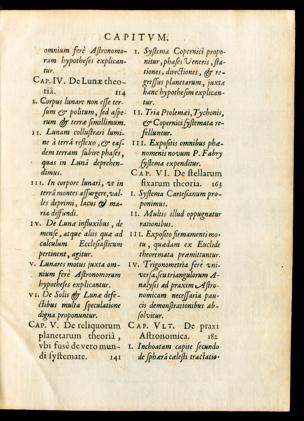 CAPITVM.
omnium ferè Astronomo-
ram hypotheses explican-
tur.
CAP. IV. De Lunæ theo-
riâ. 114
I. Corpus lunare non esse ter-
sum & politum, sed aspe-
rum & terræ simillimum.
II. Lunam collustrari lumi-
ne à terrâ reflexo, & eas-
dem terram subire phases,
quas in Lunâ deprehen-
dimus.
III. In corpore lunari, vt in
terrâ montes assurgere, val-
les deprimi, lacus & ma-
ria diffundi.
IV. De Lunæ influxibus, de
mense, atque aliis quæ ad
calculum Ecclesiasticum
pertinent, agitur.
V. Lunares motus juxta om-
nium ferè Astronomorum
hypotheses explicantur.
VI. De Solis & Lunæ defe-
ctibus multa speculatione
digna proponuntur.
CAP. V. De reliquorum
planetarum theoriâ,
vbi fusè de vero mun-
di systemate. 141
I. Systema Copernici propo-
nitur, phases Veneris, sta-
tiones, directiones, & re-
gressus planetarum, juxta
hanc hypothesim explican-
tur.
II. Tria Ptolemæi, Tychonis,
& Copernici systemata re-
felluntur.
III. Expositis omnibus phæ-
nomenis novum P. Fabry
systema expenditur.
CAP. VI. De stellarum
fixarum theoria. 163
I. Systema Cartesianum pro-
ponimus.
II. Multis illud oppugnatur
rationibus.
III. Exposito firmamenti mo-
tu, quædam ex Euclide
theoremata præmittuntur.
IV. Trigonometria ferè vni-
versa, seu triangulorum A-
nalysis ad praxim Astro-
nomicam necessaria pau-
cis demonstrationibus ab-
solvitur.
CAP. VLT. De praxi
Astronomica. 182
I. Inchoatam capite secundo
de sphærâ cælesti tractatio-